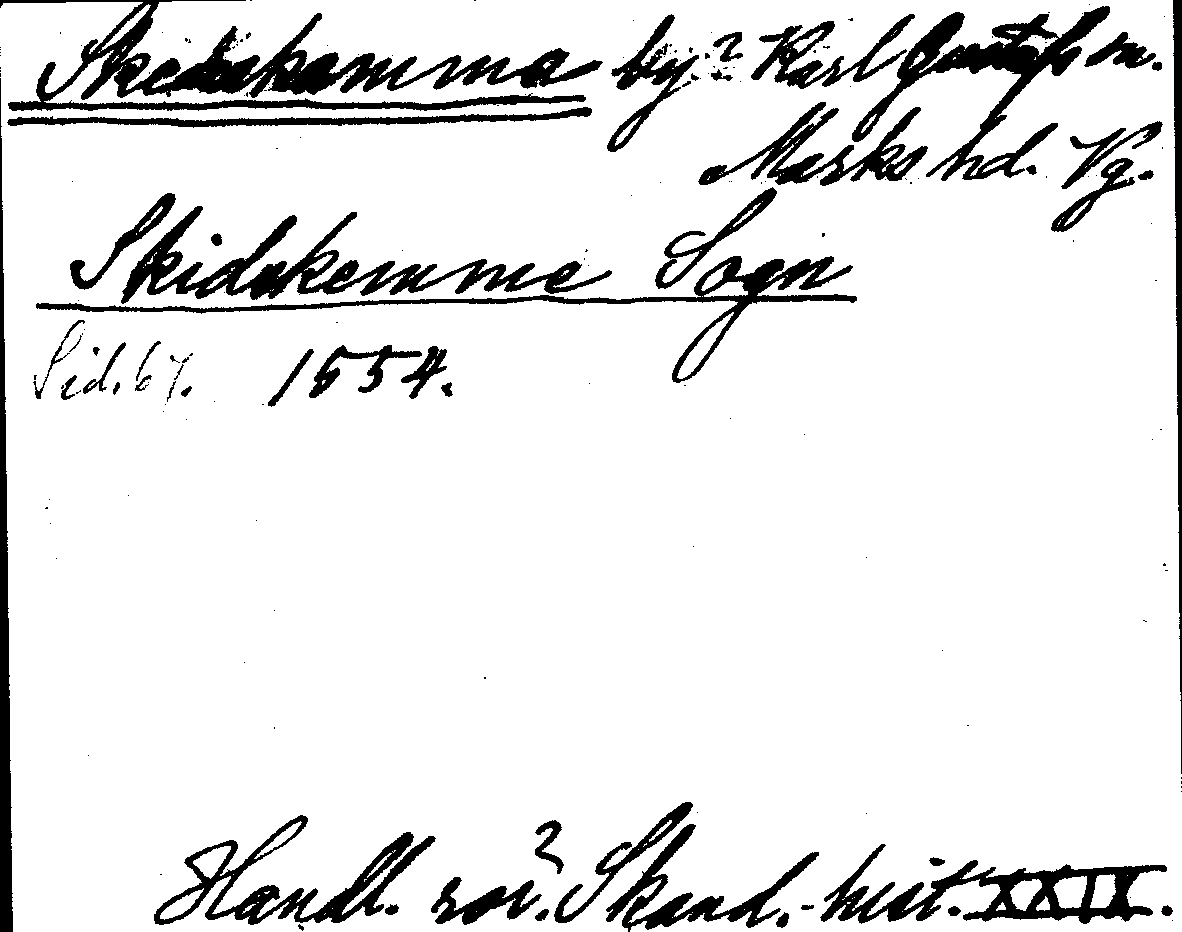 Skedakamma by? Karl Gustafs sn.
Marks hd. Vg.
Skidakemme Sogn
Sid. 67. 1554.
Handl. rör. Skand.-hist. XXIX.